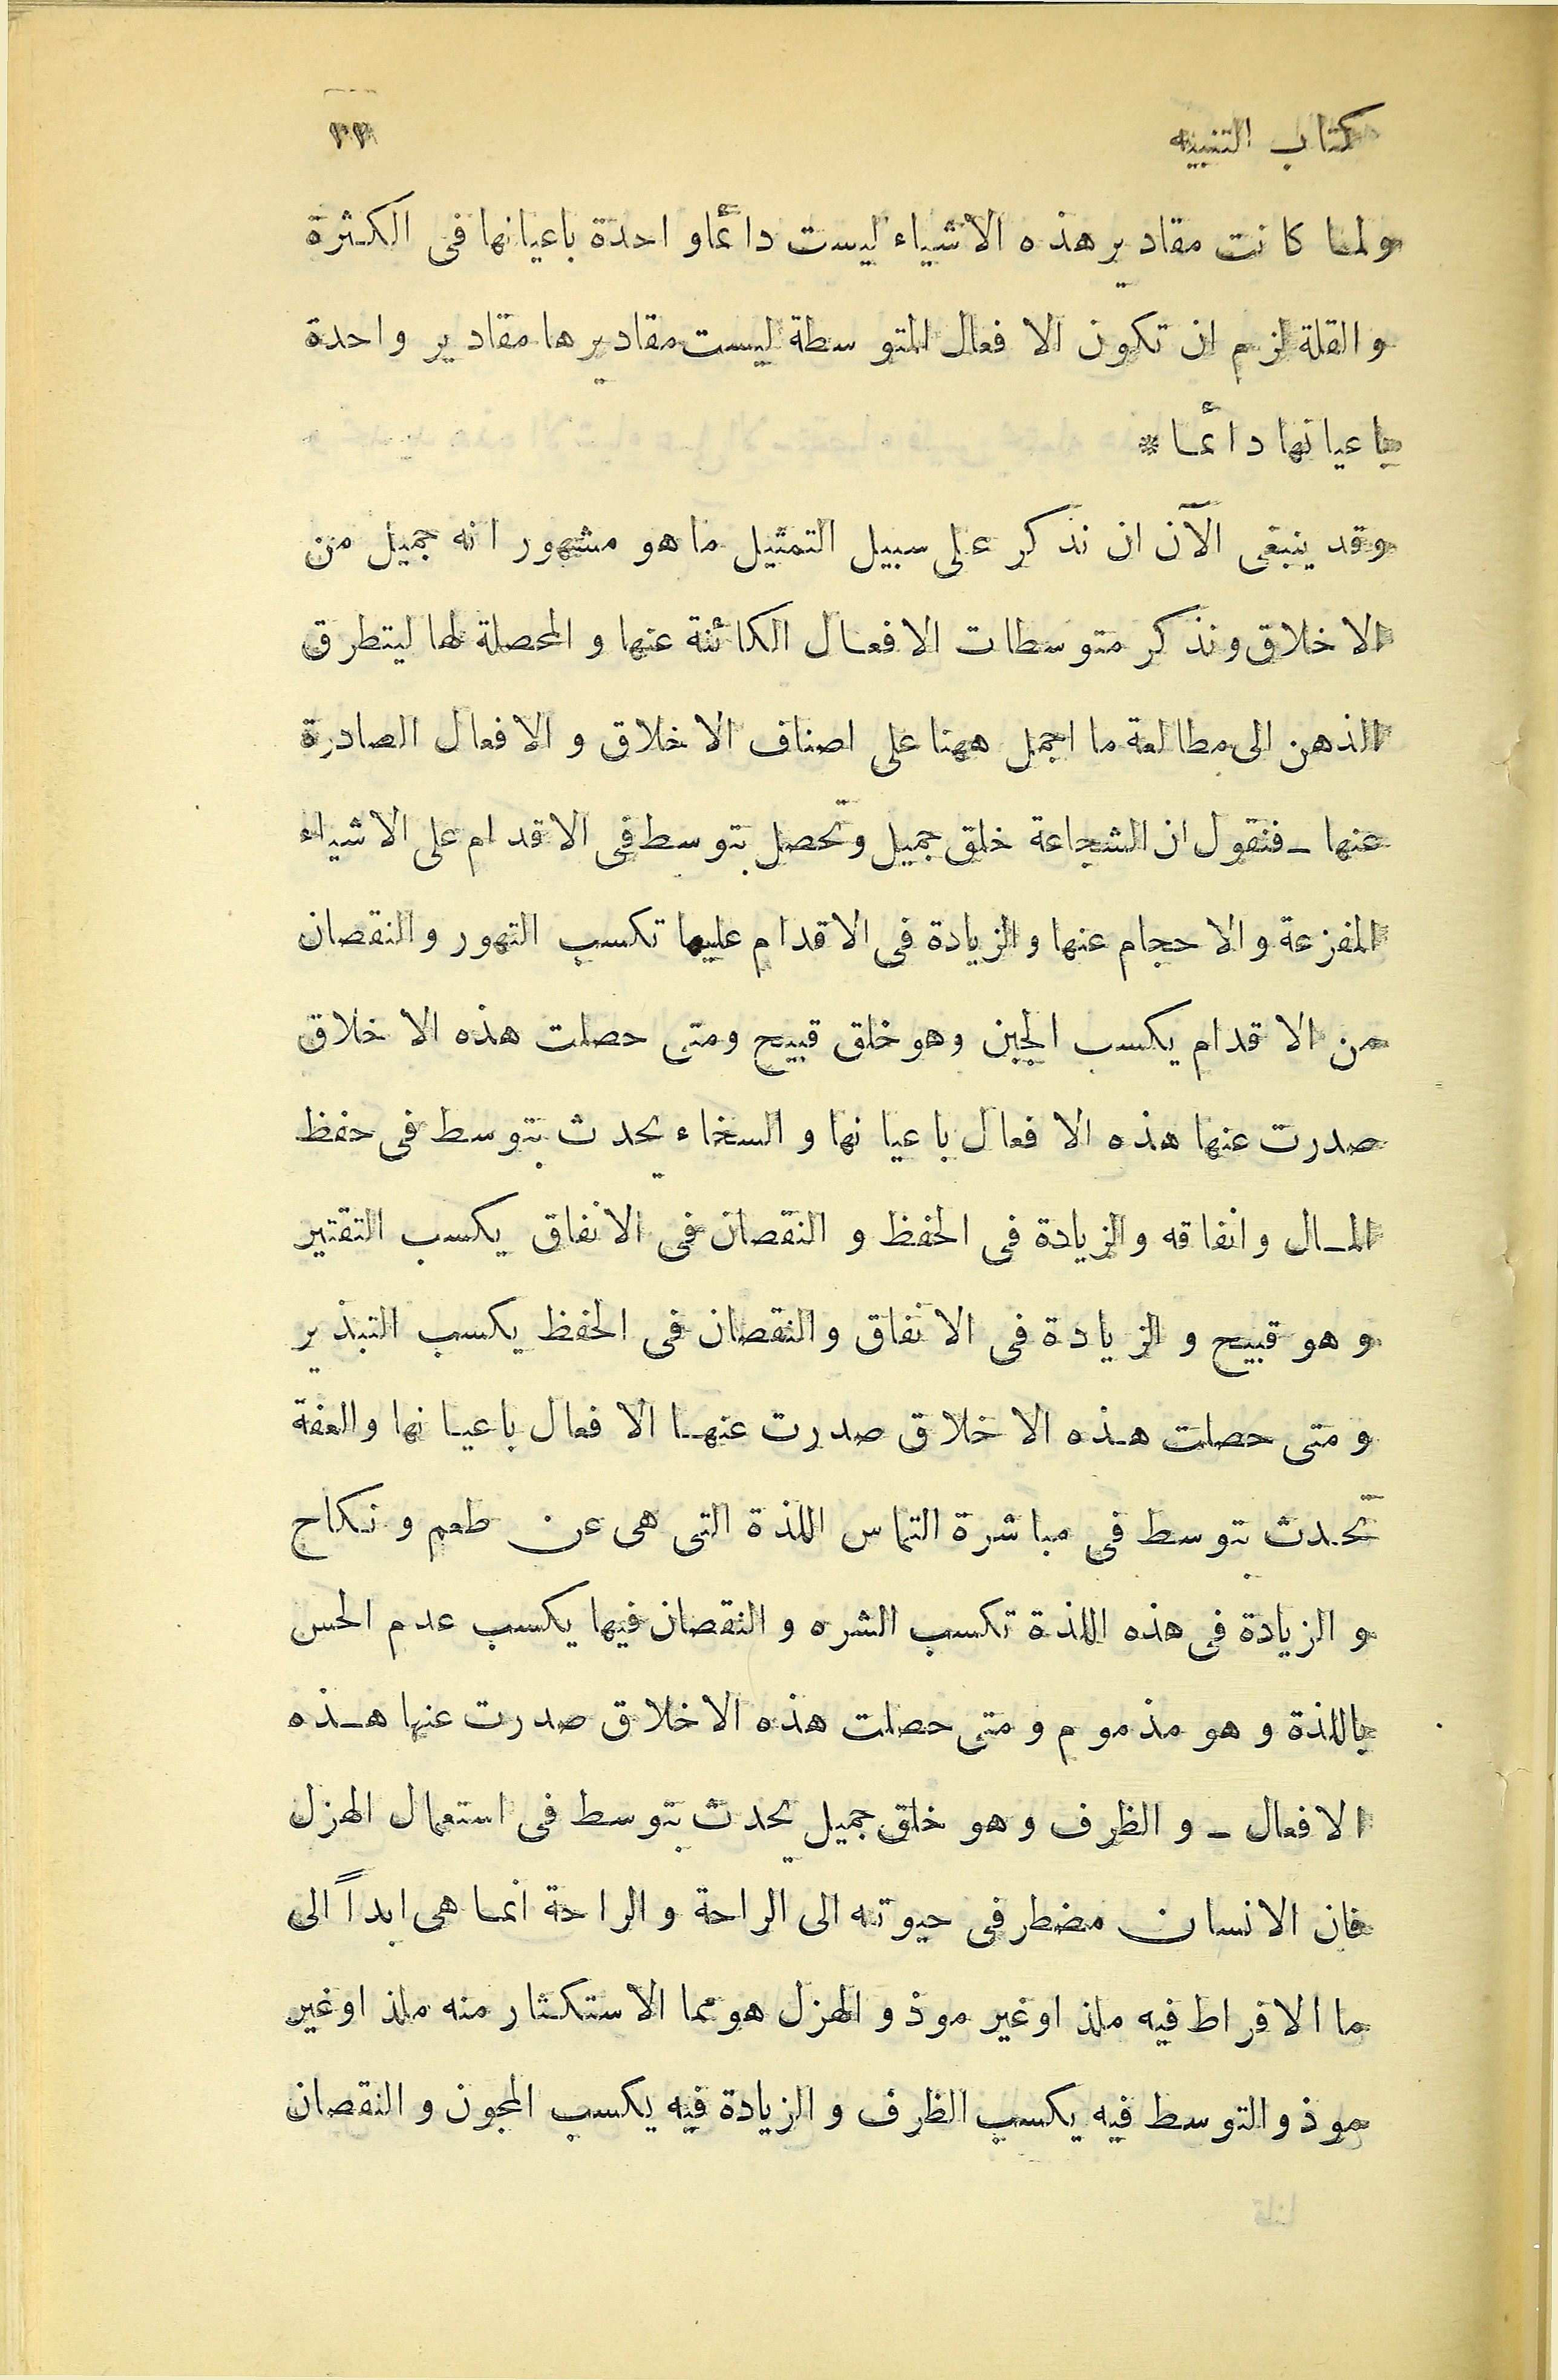 كتاب التنبيه
ولما كانت مقادير هذه الاشياء ليست دائما واحدة باعيانها فى الكثرة
و القلة لزم ان تكون الافعال المتوسطة ليست مقاديرها مقادير واحدة
باعيانها دائما *
وقد ينبغى الآن ان نذكر على سبيل التمثيل ما هو مشهور انه جميل من
الاخلاق ونذكر متوسطات الافعال الكائنة عنها و المحصلة لها ليتطرق
الذهن الى مطالعة ما اجمل ههنا على اصناف الاخلاق و الافعال الصادرة
عنها ـ فنقول ان الشجاعة خلق جميل وتحصل بتوسط فى الاقدام على الاشياء
المفزعة و الاحجام عنها و الزيادة فى الاقدام عليها تكسب التهور و النقصان
من الاقدام يكسب الجبن وهو خلق قبيح ومتى حصلت هذه الاخلاق
صدرت عنها هذه الافعال باعيانها و السخاء يحدث بتوسط فى حفظ
المال و انفاقه و الزيادة فى الحفظ و النقصان فى الانفاق يكسب التقتير
و هو قبيح و الزيادة فى الانفاق و النقصان فى الحفظ يكسب التبذير
و متى حصلت هذه الاخلاق صدرت عنها الافعال باعيانها و العفة
تحدث بتوسط فى مباشرة التماس اللذة التى هى عن طعم و نكاح
و الزيادة فى هذه اللذة تكسب الشره و النقصان فيها يكسب عدم الحس
باللذة و هو مذموم و متى حصلت هذه الاخلاق صدرت عنها هذه
الافعال ـ و الظرف و هو خلق جميل يحدث بتوسط فى استعمال الهزل
فان الانسان مضطر فى حيوته الى الراحة و الراحة انما هى ابداً الى
ما الافراط فيه ملذ اوغير موذ و الهزل هو مما الاستكثار منه ملذ اوغير
موذ و التوسط فيه يكسب الظرف و الزيادة فيه يكسب المجون و النقصان